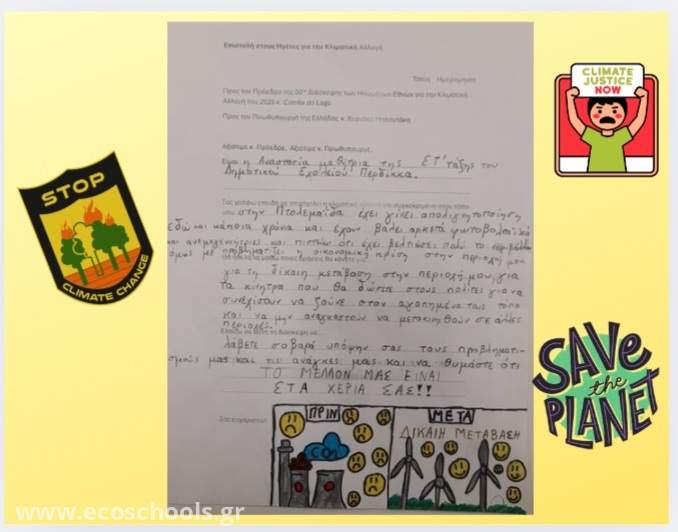 Επιστολή στους Ηγέτες για την Κλιματική Αλλαγή
Τόπος Ημερομηνία
Προς τον Πρόεδρο της 30ης Διάσκεψης των Ηνωμένων Εθνών για την Κλιματική
Αλλαγή του 2025 κ. Corrêa do Lago
Προς τον Πρωθυπουργό της Ελλάδας κ. Κυριάκο Μητσοτάκη
Αξιότιμε κ. Πρόεδρε, Αξιότιμε κ. Πρωθυπουργέ,
Είμαι η Αναστασία μαθήτρια της ΣΤ' τάξης του
Δημοτικού Σχολείου Περδίκκα.
Σας γράφω επειδή
στην Πτολεμαΐδα έχει γίνει απολιγνητοποίηση
εδώ και κάποια χρόνια και έχουν βάλει αρκετά φωτοβολταϊκά
και ανεμογεννήτριες και πιστεύω ότι έχει βελτιώσει πολύ το περιβάλλον
όμως με προβληματίζει η οικονομική κρίση στην περιοχή μου
για τη δίκαιη μετάβαση στην περιοχή μου, για
τα κίνητρα που θα δώσετε στους πολίτες για να
συνεχίσουν να ζούνε στον αγαπημένο τους τόπο
και να μην αναγκαστούν να μετακινηθούν σε άλλες
περιοχές.
λάβετε σοβαρά υπόψην σας τους προβληματι-
σμούς μας και τις ανάγκες μας και να θυμάστε ότι
ΤΟ ΜΕΛΛΟΝ ΜΑΣ ΕΙΝΑΙ
ΣΤΑ ΧΕΡΙΑ ΣΑΣ!!
Σας ευχαριστώ!
ΠΡΙΝ
CO2
ΜΕΤΑ
ΔΙΚΑΙΗ ΜΕΤΑΒΑΣΗ
STOP
CLIMATE CHANGE
CLIMATE
JUSTICE
NOW
SAVE
the
PLANET
www.ecoschools.gr